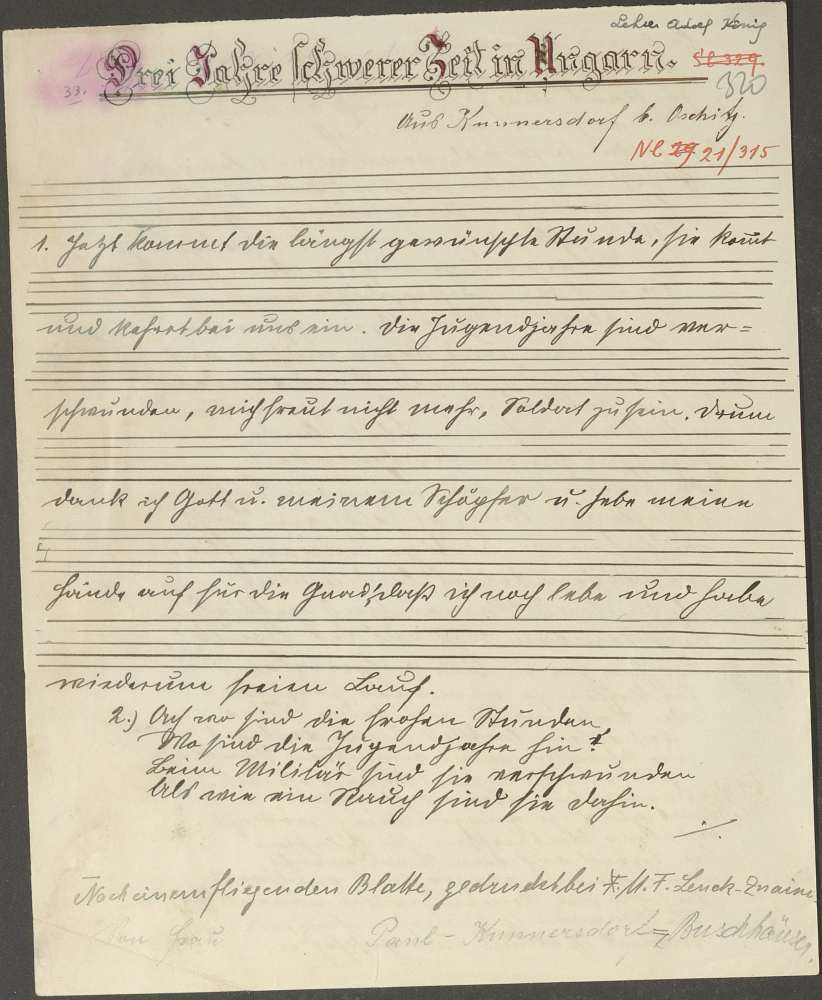 Lehrer Adolf König
33. Drei Jahre schwerer Zeit in Ungarn. Sb 329.
320
Aus Kunnersdorf b. Oschitz.
Nl 29 21/315
1. Jetzt kommt die längst gewünschte Stunde, sie kom̄t
und kehret bei uns ein. Die Jugendjahre sind ver=
schwunden, mich freut nicht mehr, Soldat zu sein. Drum
dank ich Gott u. meinem Schöpfer u. hebe meine
Hände auf für die Gnad', daß ich noch lebe und habe
wiederum freien Lauf.
2.) Ach wo sind die frohen Stunden,
Wo sind die Jugendjahre hin?
Beim Militär sind sie verschwunden
Als wie ein Rauch sind sie dahin.
./.
Nach einem fliegenden Blatte, gedruckt bei M. F. Lenck-Znaim.
Von Frau Paul - Kunnersdorf = Buschhäuser.